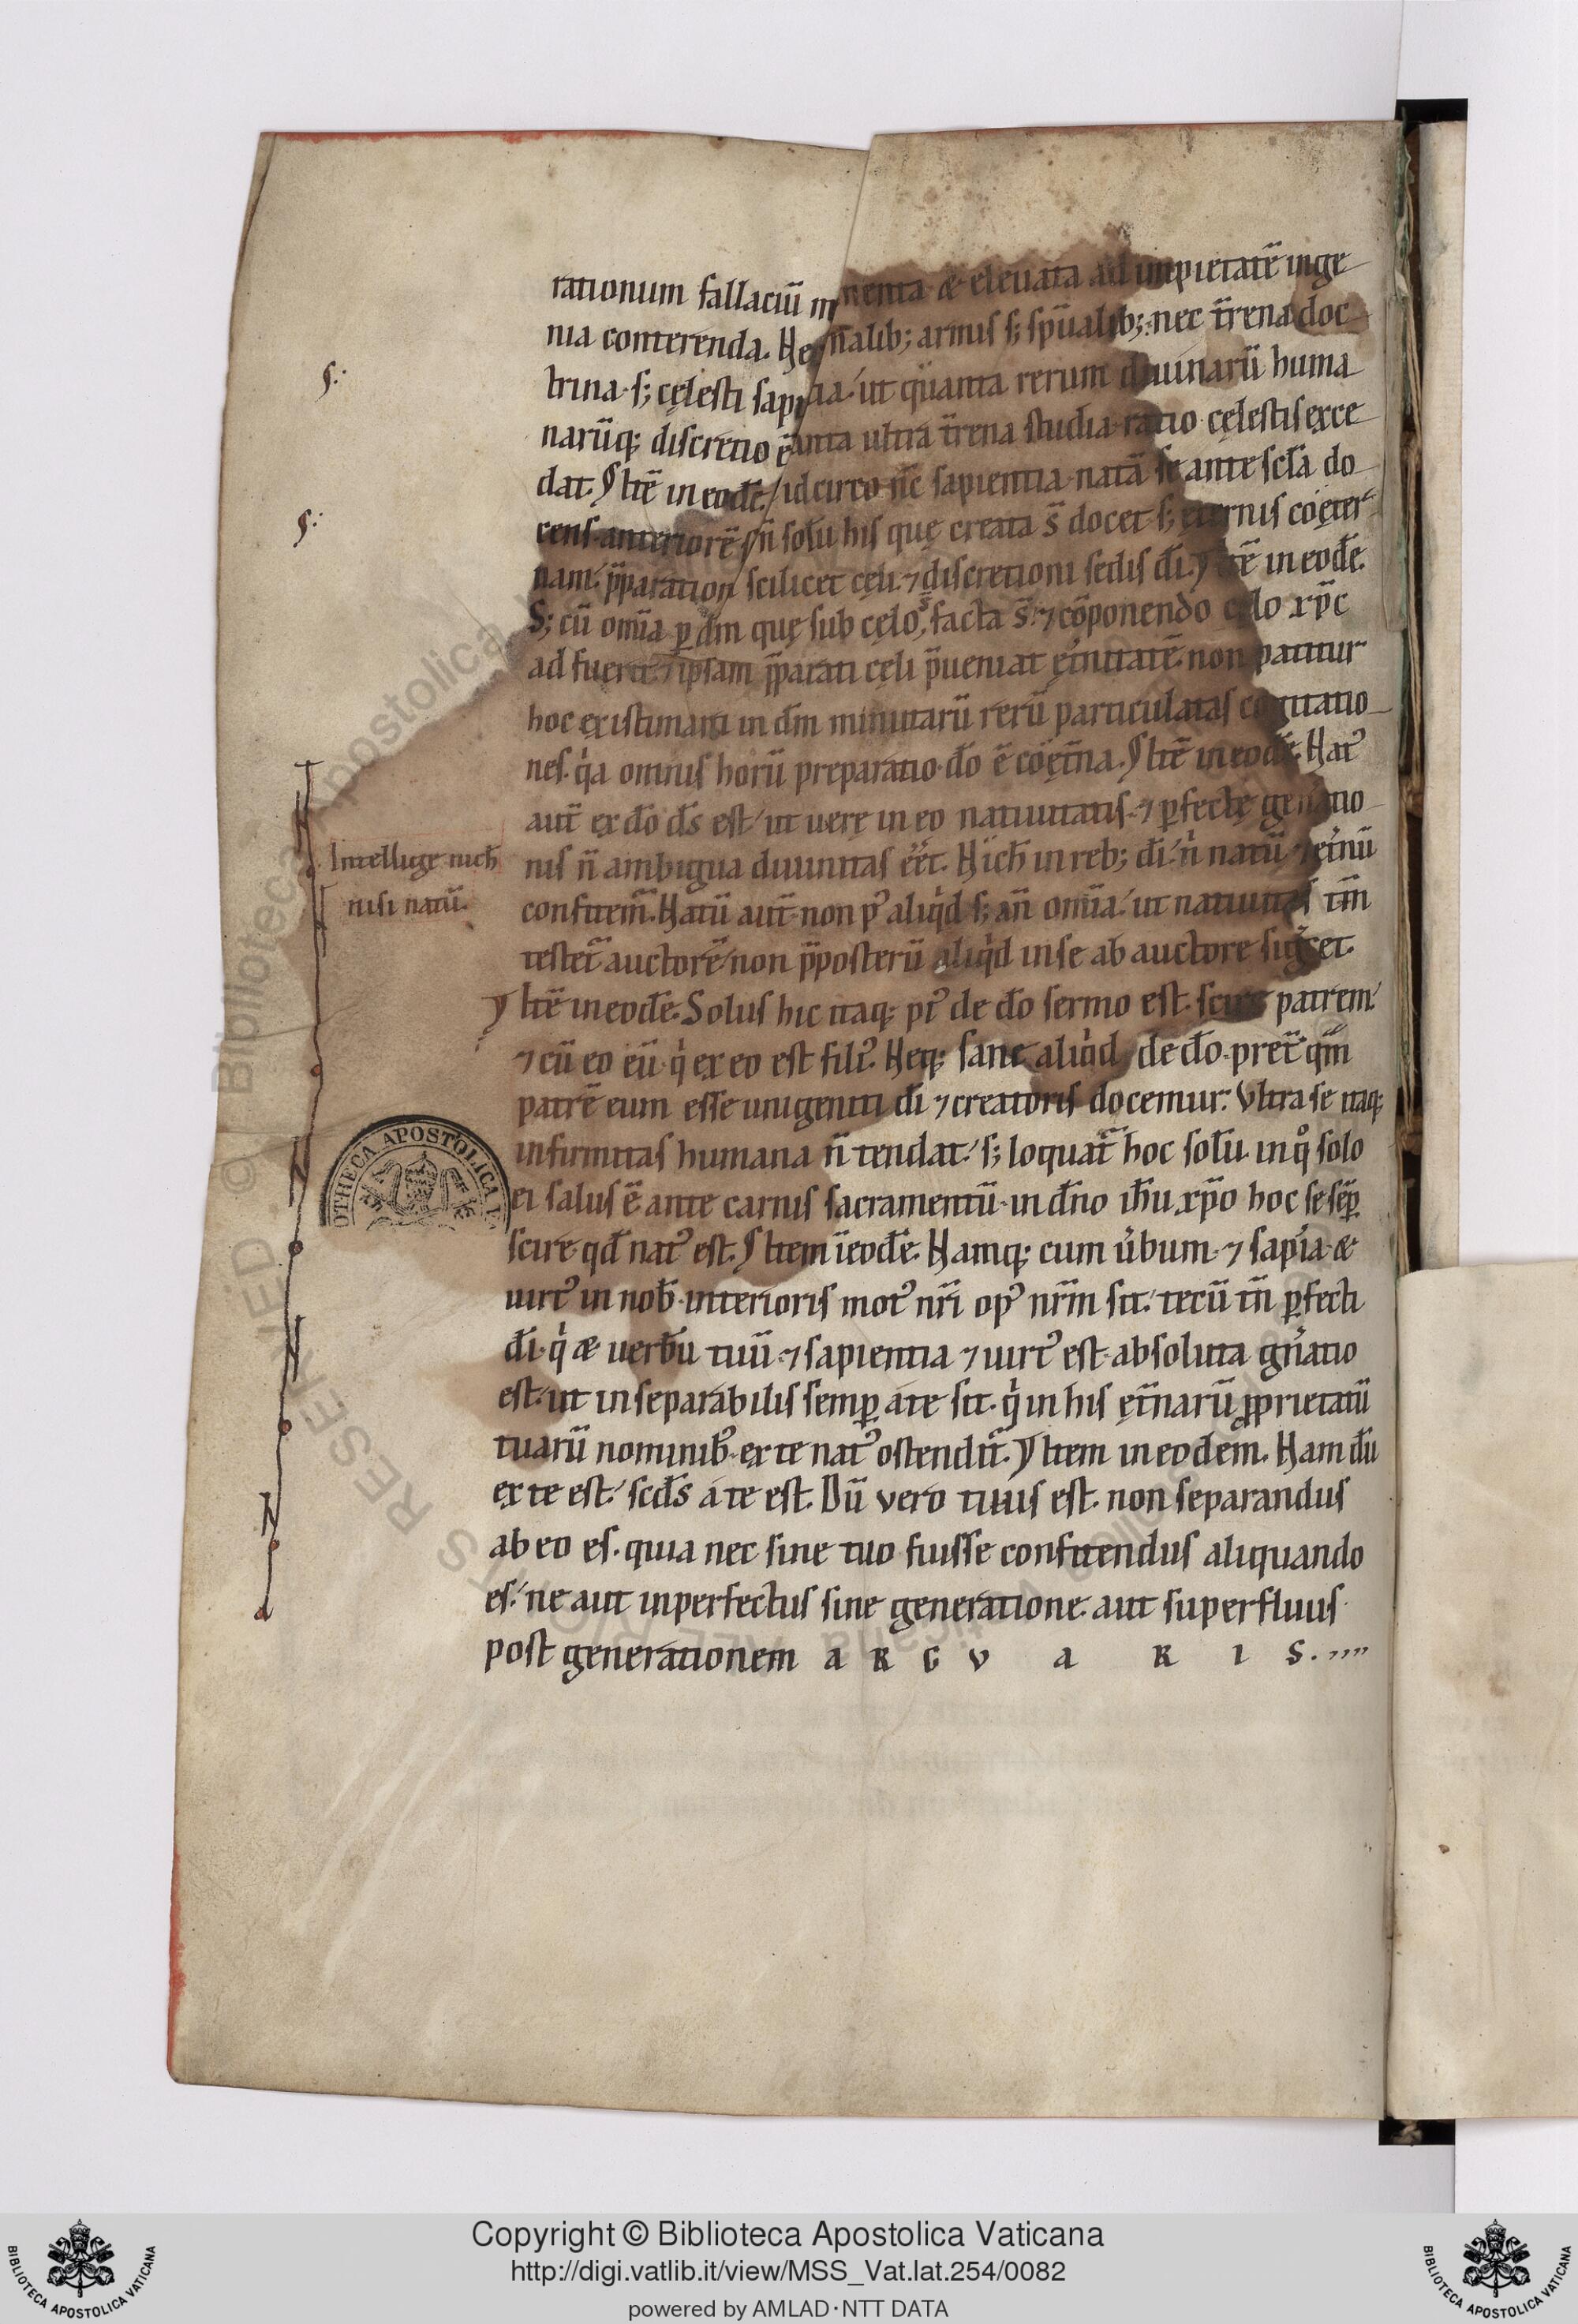 rationum fallaciū ın nenta æ eleuata ad impietatē inge
nia conterenda. Nec nalib; armis s; sp̄ualib; nec t̄rena doc
trina s; cęlesti sapi tia ut quanta rerum diuinarū huma
narūq; discretio ē tanta ultra t̄rena studia ratio cęlestis exce
dat. Itē in eodē. idcirco nc̄ sapientia natā se ante scl̄a do
cens anteriorē n̄ solū his quę creata s̄ docet s; ęternis coęter
nam. p̄paration scilicet cęli ⁊ discretioni sedis dī. Itē in eodē.
S; cū om̄ia p dm̄ quę sub cęlo s̄ facta s̄ ⁊ cōponendo cęlo xp̄c
ad fuerit ⁊ ipsam p̄parati cęli p̄ueniat ęt̄nitatē non patitur
hoc existimari in dm̄ minutarū rerū particulatas cogitatio
nes. qa omnis horū preparatio dō ē coęt̄na. Itē in eodē. Nat᾿
aut̄ ex dō ds̄ est ut uerę in eo natiuitatis ⁊ pfectę genatio
Intellige nich̄
nisi natū.
nis n̄ ambigua diuinitas ēet. Nich̄ in reb; dī n̄ natū ⁊ ęt̄nū
confitem̄. Natū aut̄ non p᾿ aliqd s; an̄ om̄ia ut natiuitas tm̄
testet̄ auctorē non p̄posterū aliqd in se ab auctore sigcet.
Itē in eodē. Solus hic itaq; pr᾿ de dō sermo est. scire patrem
⁊ cū eo eū q ex eo est fili᾿. Neq; sane aliqd de dō pret̄ qm̄
patrē eum esse unigeniti dī ⁊ creatoris docemur. Vltra se itaq;
infirmitas humana n̄ tendat s; loquat̄ hoc solū in q̊ solo
ei salus ē ante carnis sacramentū in dn̄o ih̄u xp̄o hoc se sēp
scire qd̄ nat᾿ est. Item ī eodē. Namq; cum ūbum ⁊ sapīa æ
uirt᾿ in nob̄ interioris mot᾿ nr̄i op᾿ nr̄m sit. tecū tn̄ pfecti
dī q æ uerbū tuū ⁊ sapientia ⁊ uirt᾿ est absoluta gn̄atio
est. ut inseparabilis semp a te sit. q in his ęt̄narū pprietatū
tuarū nominib᾿ ex te nat᾿ ostendit̄. Item in eodem. Nam dū
ex te est sc̄ds a te est. Dū vero tuus est. non separandus
ab eo es. quia nec sine tuo fuisse confitendus aliquando
es. ne aut inperfectus sine generatione aut superfluus
post generationem A R G V A R I S . ,,,,
BIBLIOTECA APOSTOLICA VATICANA
Copyright © Biblioteca Apostolica Vaticana
http://digi.vatlib.it/view/MSS_Vat.lat.254/0082
powered by AMLAD·NTT DATA
BIBLIOTECA APOSTOLICA VATICANA